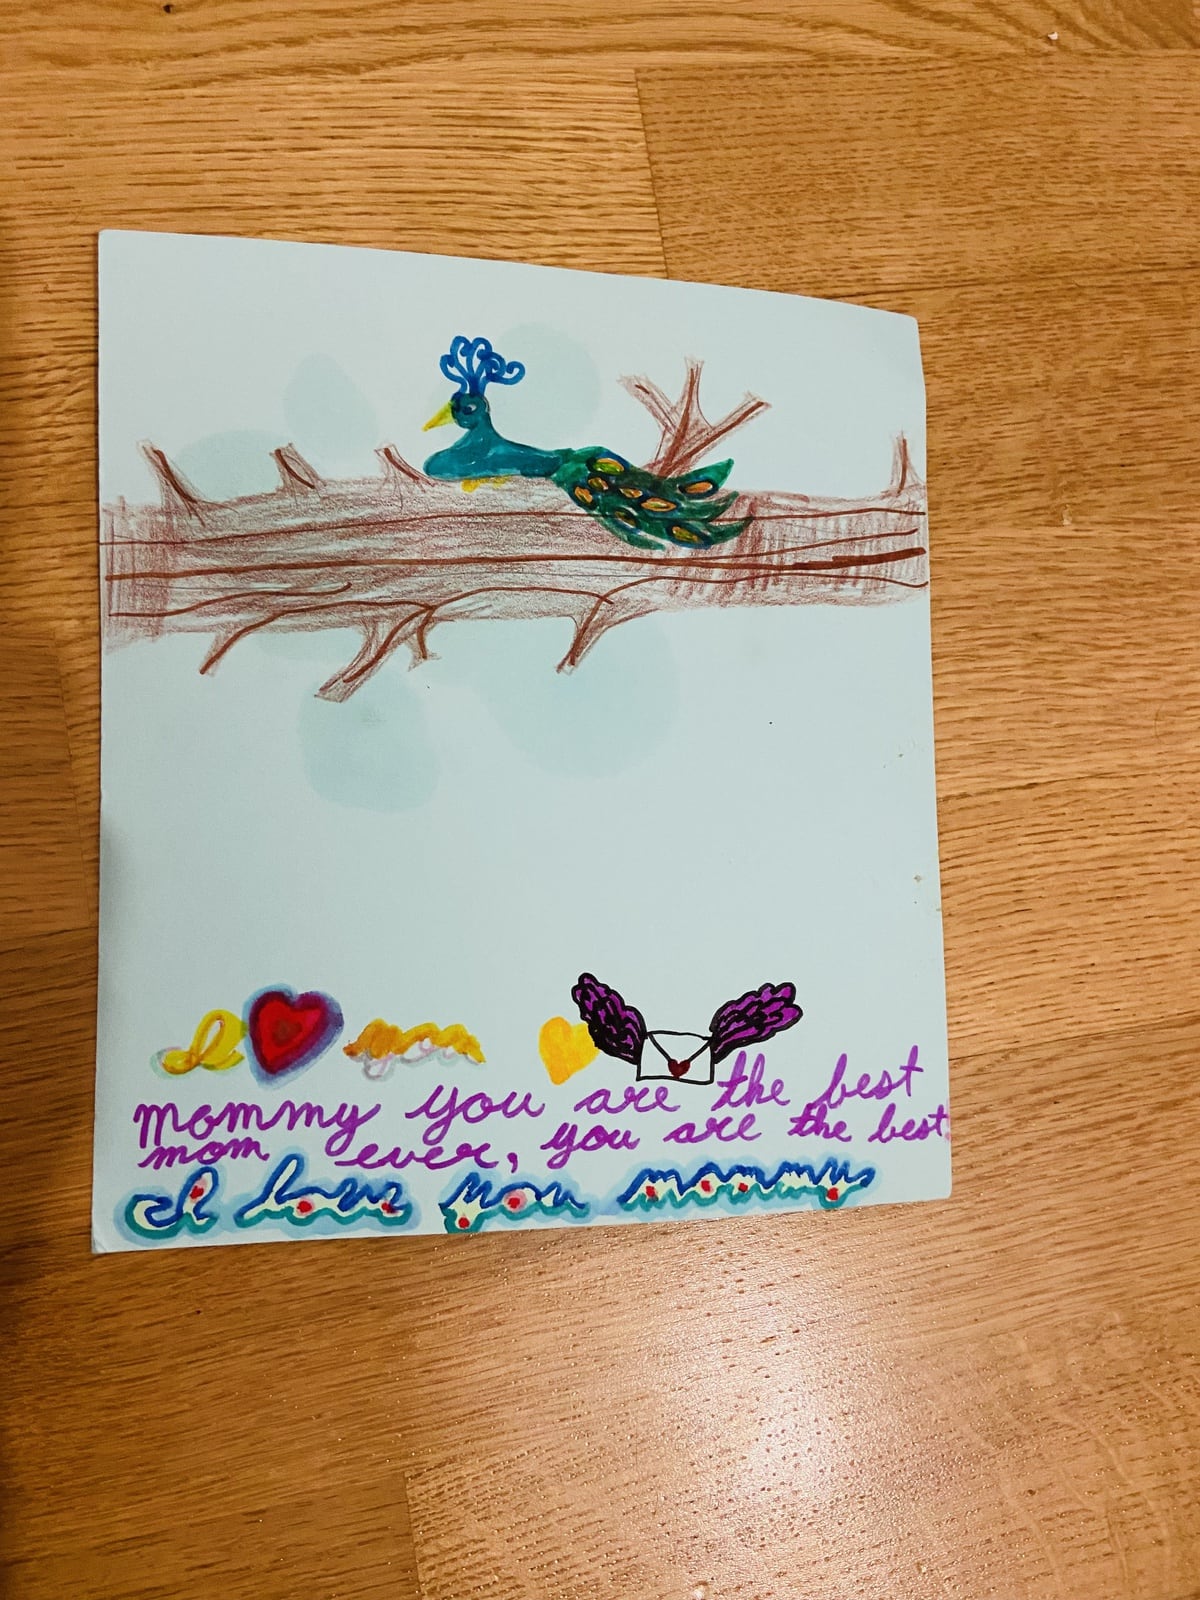 I ❤ you
mommy you are the best
mom ever, you are the best.
I love you mommy